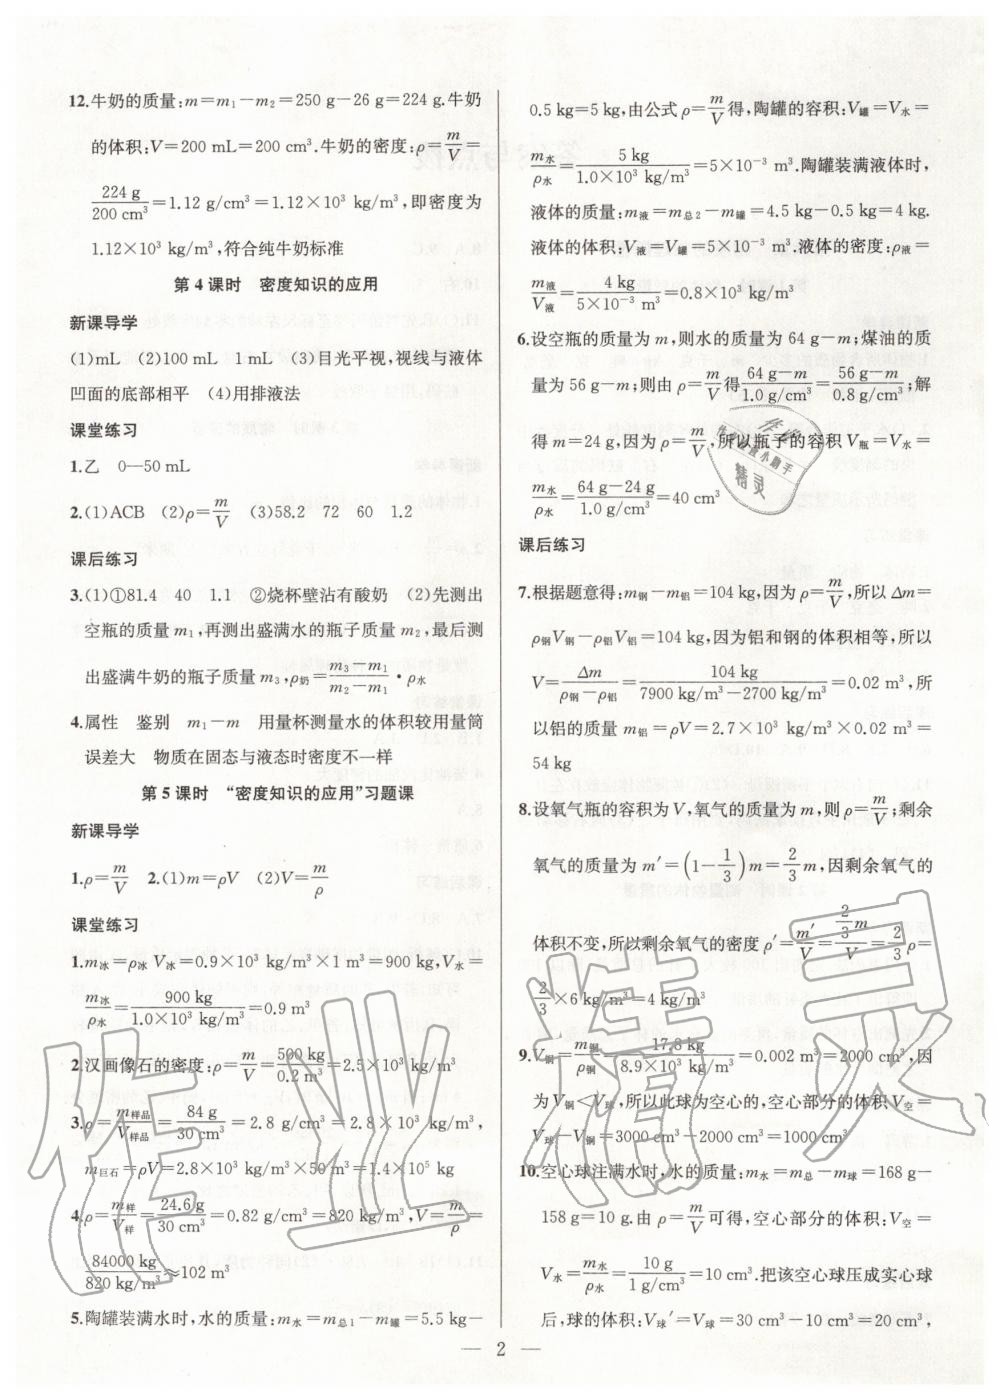 12.牛奶的质量:m=m₁−m₂=250 g−26 g=224 g.牛奶
的体积:V=200 mL=200 cm³.牛奶的密度:ρ=m/V=
224 g/200 cm³=1.12 g/cm³=1.12×10³ kg/m³,即密度为
1.12×10³ kg/m³,符合纯牛奶标准
第4课时 密度知识的应用
新课导学
(1)mL (2)100 mL 1 mL (3)目光平视,视线与液体
凹面的底部相平 (4)用排液法
课堂练习
1.乙 0—50 mL
2.(1)ACB (2)ρ=m/V (3)58.2 72 60 1.2
课后练习
3.(1)①81.4 40 1.1 ②烧杯壁沾有酸奶 (2)先测出
空瓶的质量m₁,再测出盛满水的瓶子质量m₂,最后测
出盛满牛奶的瓶子质量m₃,ρ奶=(m₃−m₁)/(m₂−m₁)·ρ水
4.属性 鉴别 m₁−m 用量杯测量水的体积较用量筒
误差大 物质在固态与液态时密度不一样
第5课时 “密度知识的应用”习题课
新课导学
1.ρ=m/V 2.(1)m=ρV (2)V=m/ρ
课堂练习
1.m冰=ρ冰V冰=0.9×10³ kg/m³×1 m³=900 kg,V水=
m冰/ρ水=900 kg/(1.0×10³ kg/m³)=0.9 m³
2.汉画像石的密度:ρ=m/V=500 kg/0.2 m³=2.5×10³ kg/m³
3.ρ=m样品/V样品=84 g/30 cm³=2.8 g/cm³=2.8×10³ kg/m³
m巨石=ρV=2.8×10³ kg/m³×50 m³=1.4×10⁵ kg
4.ρ=m样/V样=24.6 g/30 cm³=0.82 g/cm³=820 kg/m³,V=m/ρ=
84000 kg/(820 kg/m³)≈102 m³
5.陶罐装满水时,水的质量:m水=m总1−m罐=5.5 kg−
0.5 kg=5 kg,由公式ρ=m/V得,陶罐的容积:V罐=V水=
m水/ρ水=5 kg/(1.0×10³ kg/m³)=5×10⁻³ m³.陶罐装满液体时,
液体的质量:m液=m总2−m罐=4.5 kg−0.5 kg=4 kg.
液体的体积:V液=V罐=5×10⁻³ m³.液体的密度:ρ液=
m液/V液=4 kg/(5×10⁻³ m³)=0.8×10³ kg/m³
6.设空瓶的质量为m,则水的质量为64 g−m;煤油的质
量为56 g−m;则由ρ=m/V得(64 g−m)/(1.0 g/cm³)=(56 g−m)/(0.8 g/cm³);解
得m=24 g,因为ρ=m/V,所以瓶子的容积V瓶=V水=
m水/ρ水=(64 g−24 g)/(1.0 g/cm³)=40 cm³
课后练习
7.根据题意得:m钢−m铝=104 kg,因为ρ=m/V,所以Δm=
ρ钢V钢−ρ铝V铝=104 kg,因为铝和钢的体积相等,所以
V=Δm/(ρ钢−ρ铝)=104 kg/(7900 kg/m³−2700 kg/m³)=0.02 m³,所
以铝的质量m铝=ρV=2.7×10³ kg/m³×0.02 m³=
54 kg
8.设氧气瓶的容积为V,氧气的质量为m,则ρ=m/V;剩余
氧气的质量为m′=(1−1/3)m=2/3m,因剩余氧气的
体积不变,所以剩余氧气的密度ρ′=m′/V=(2/3m)/V=2/3ρ=
2/3×6 kg/m³=4 kg/m³
9.V铜=m铜/ρ铜=17.8 kg/(8.9×10³ kg/m³)=0.002 m³=2000 cm³,因
为V铜<V球,所以此球为空心的,空心部分的体积V空=
V球−V铜=3000 cm³−2000 cm³=1000 cm³
10.空心球注满水时,水的质量:m水=m总−m球=168 g−
158 g=10 g.由ρ=m/V可得,空心部分的体积:V空=
V水=m水/ρ水=10 g/(1 g/cm³)=10 cm³.把该空心球压成实心球
后,球的体积:V球′=V球=30 cm³−10 cm³=20 cm³,
— 2 —
作业精灵